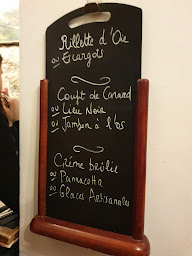 Rillette d'Oie
ou Escargots
Confit de Canard
ou Lieu Noir
ou Jambon à l'os
Crème brûlée
ou Panacotta
ou Glaces Artisanales